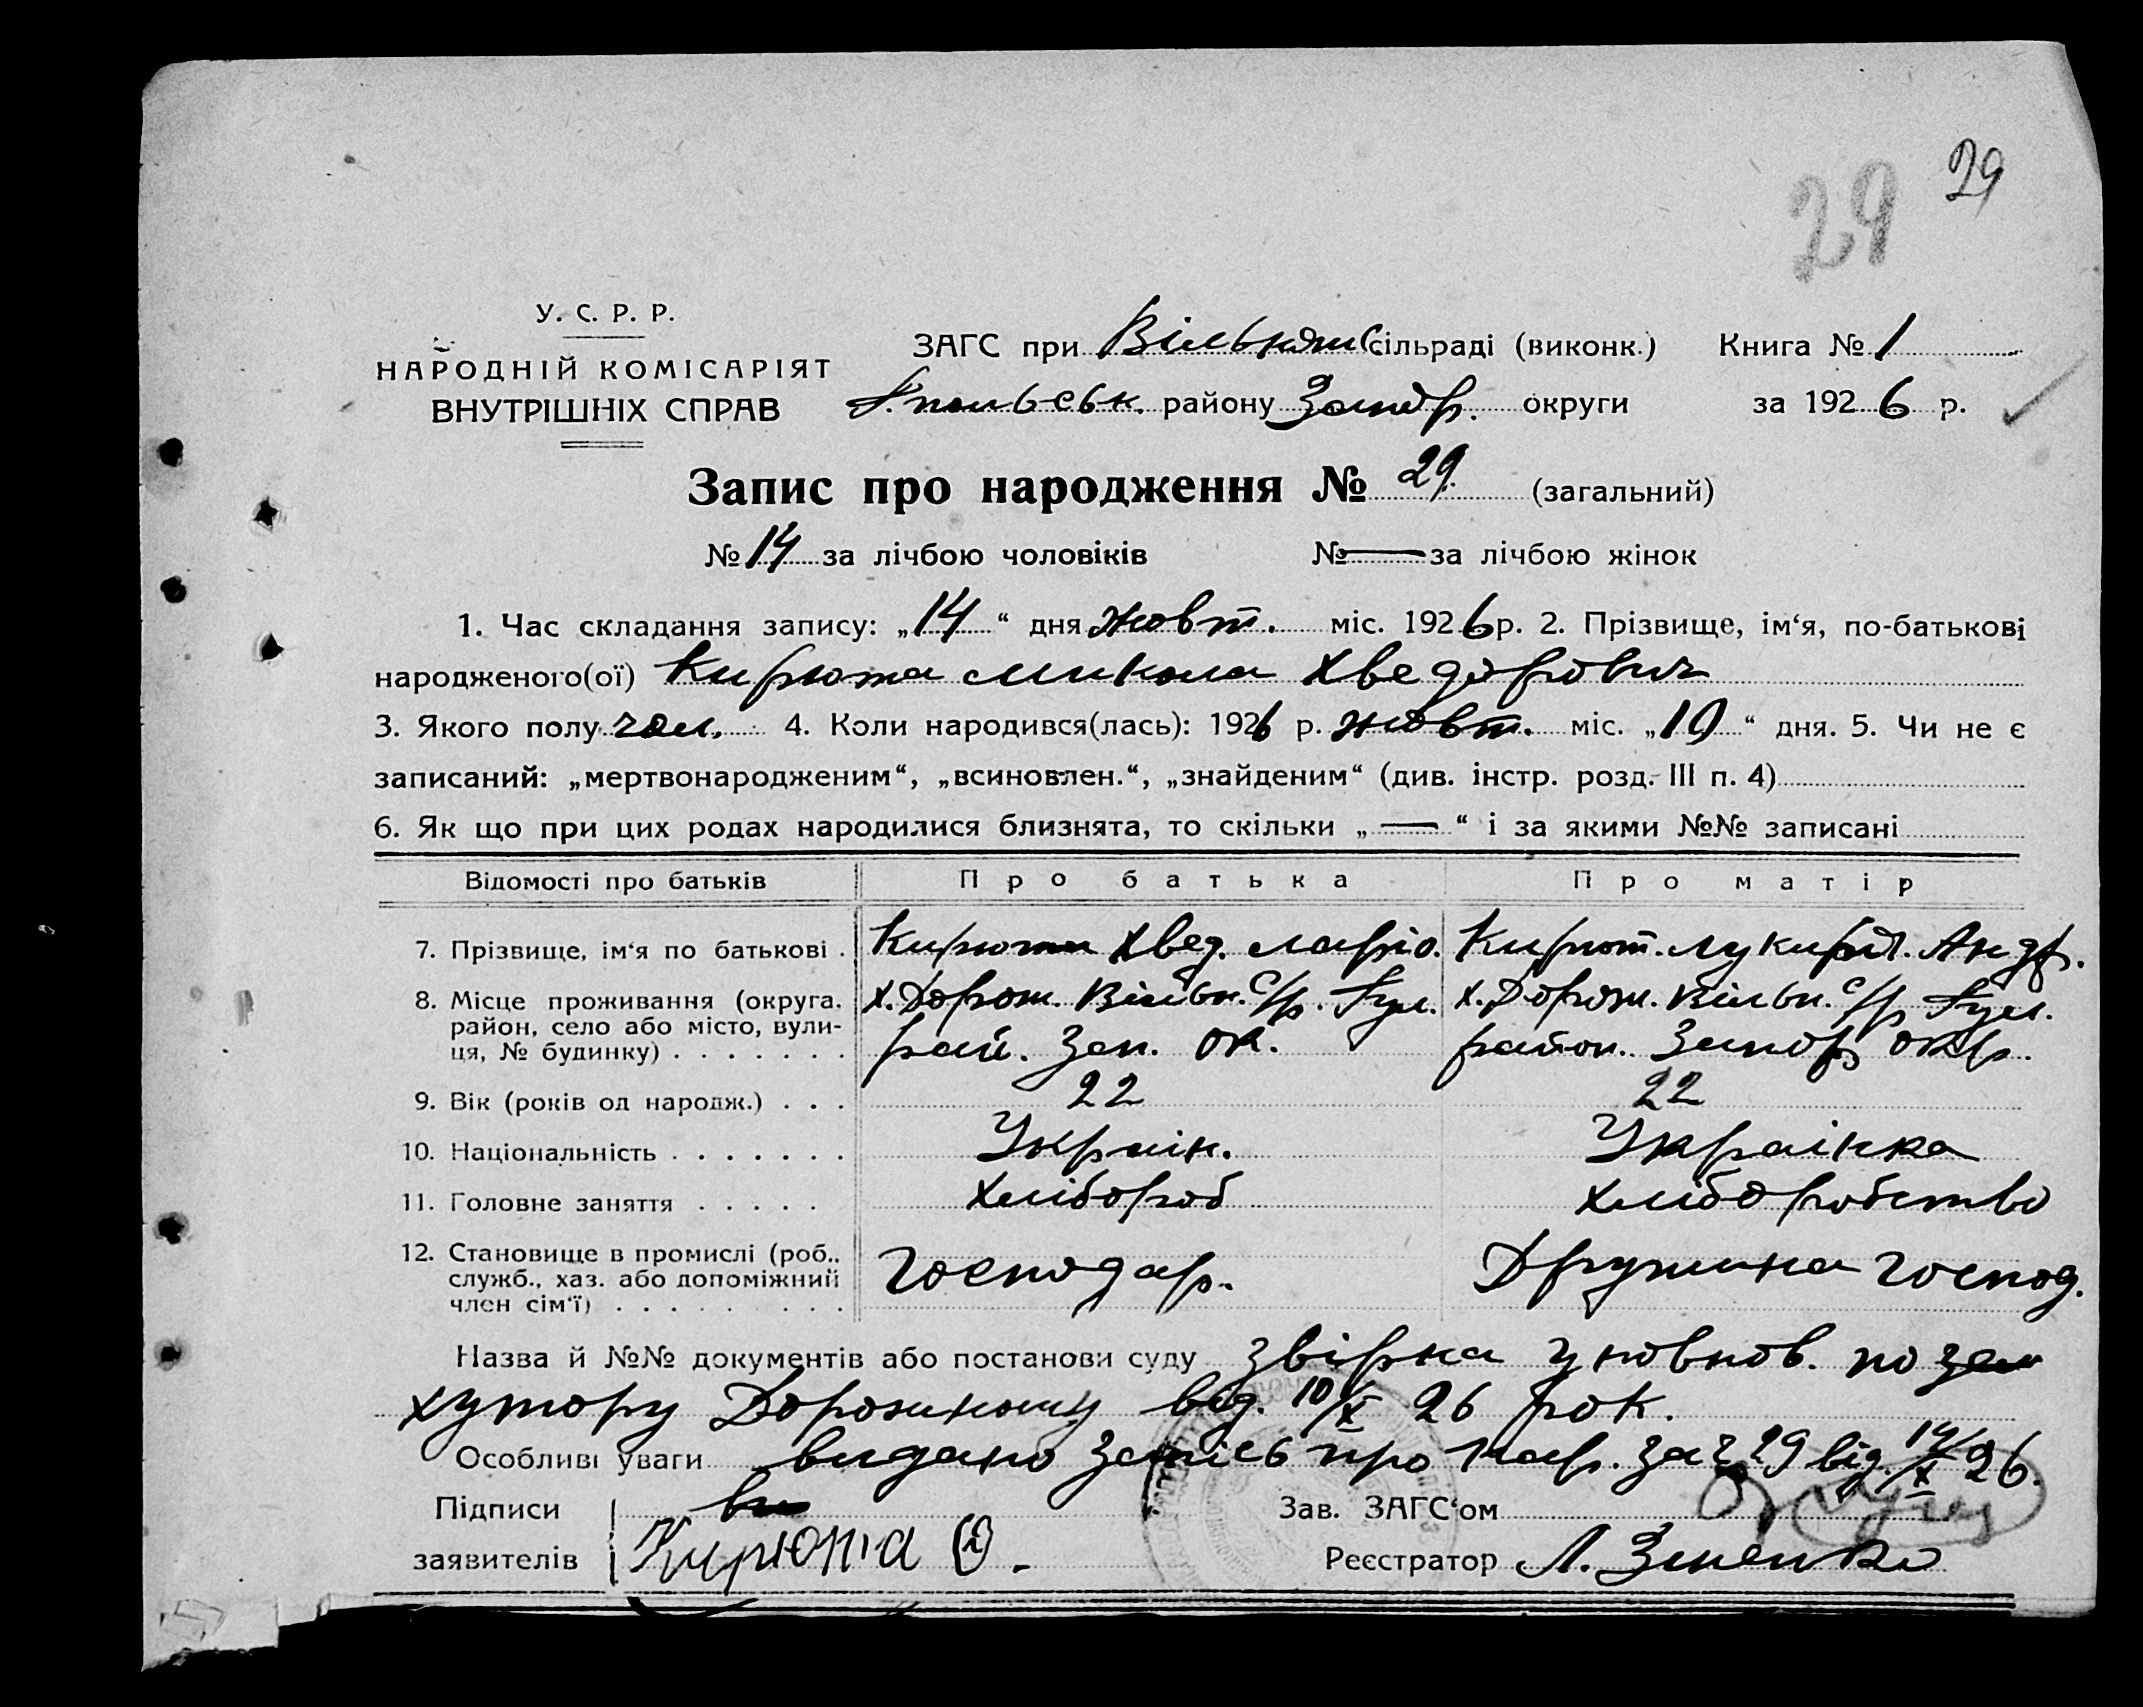 29 29
У. С. Р. Р.
НАРОДНІЙ КОМІСАРІЯТ
ВНУТРІШНІХ СПРАВ
ЗАГС при сільраді (виконк.) Книга № 1
району Запор. округи за 1926 р.
Запис про народження № 29 (загальний)
№ 14 за лічбою чоловіків № — за лічбою жінок
1. Час складання запису: „14“ дня жовт. міс. 1926 р. 2. Прізвище, ім‘я, по-батькові
народженого(ої) Кирюта Микола Хведорович
3. Якого полу чол. 4. Коли народився(лась): 1926 р. жовт. міс. „10“ дня. 5. Чи не є
записаний: „мертвонародженим“, „всиновлен.“, „знайденим“ (див. інстр. розд. III п. 4)
6. Як що при цих родах народилися близнята, то скільки „—“ і за якими №№ записані
Відомості про батьків Про батька Про матір
7. Прізвище, ім‘я по батькові . Кирюта Хвед. Ларіо. Кирют. Лукир. Андр.
8. Місце проживання (округа, район, село або місто, вулиця, № будинку) . . . . . . . х. Дорож. Вільн. с/р. Гул. х. Дорож. Вільн. с/р Гул.
рай. Зап. ок. район. Запор окр.
9. Вік (років од народж.) . . . 22 22
10. Національність . . . . . . . Україн. Українка
11. Головне заняття . . . . . Хлібороб Хліборобство
12. Становище в промислі (роб., служб., хаз. або допоміжний член сім‘ї) . . . . . . . . . Господар. Дружина господ.
Назва й №№ документів або постанови суду звірка уповнов. по
хутору Дорожному від. 10/X 26 рок.
Особливі уваги видано запісь про нар. за № 29 від. 14/X 26.
Підписи Зав. ЗАГС‘ом
заявителів Кирюта Реєстратор Л. Зіненко